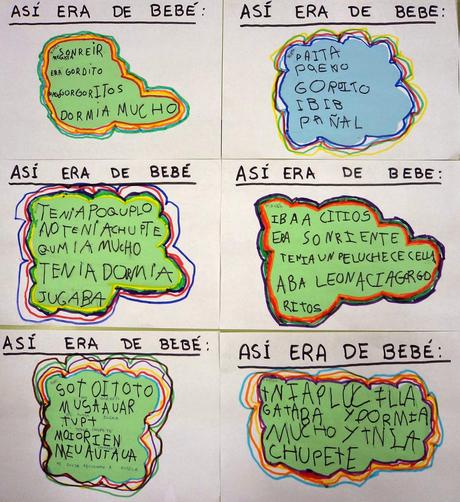 ASÍ ERA DE BEBÉ:
SONREIR
ERA GORDITO
GORGORITOS
DORMIA MUCHO
ASÍ ERA DE BEBÉ:
PAITA
POENO
GORDITO
IBIB
PAÑAL
ASÍ ERA DE BEBÉ
TENIAPOQUPLO
NOTENIACHUPTE
QUMIA MUCHO
TENIA DORMIA
JUGABA
ASÍ ERA DE BEBÉ:
IBAA CITIOS
ERA SONRIENTE
TENIAUNPELUCHECECELLA
ABA LEONACIAGORGO
RITOS
ASÍ ERA DE BEBÉ:
SOTOITOTO
MUSAAUAR
TVPT
MOTORIEN
MEVAUTAUA
ASÍ ERA DE BEBÉ:
TNIAPLUCILLA
GATABA Y DORMIA
MUCHO Y TNIA
CHUPETE